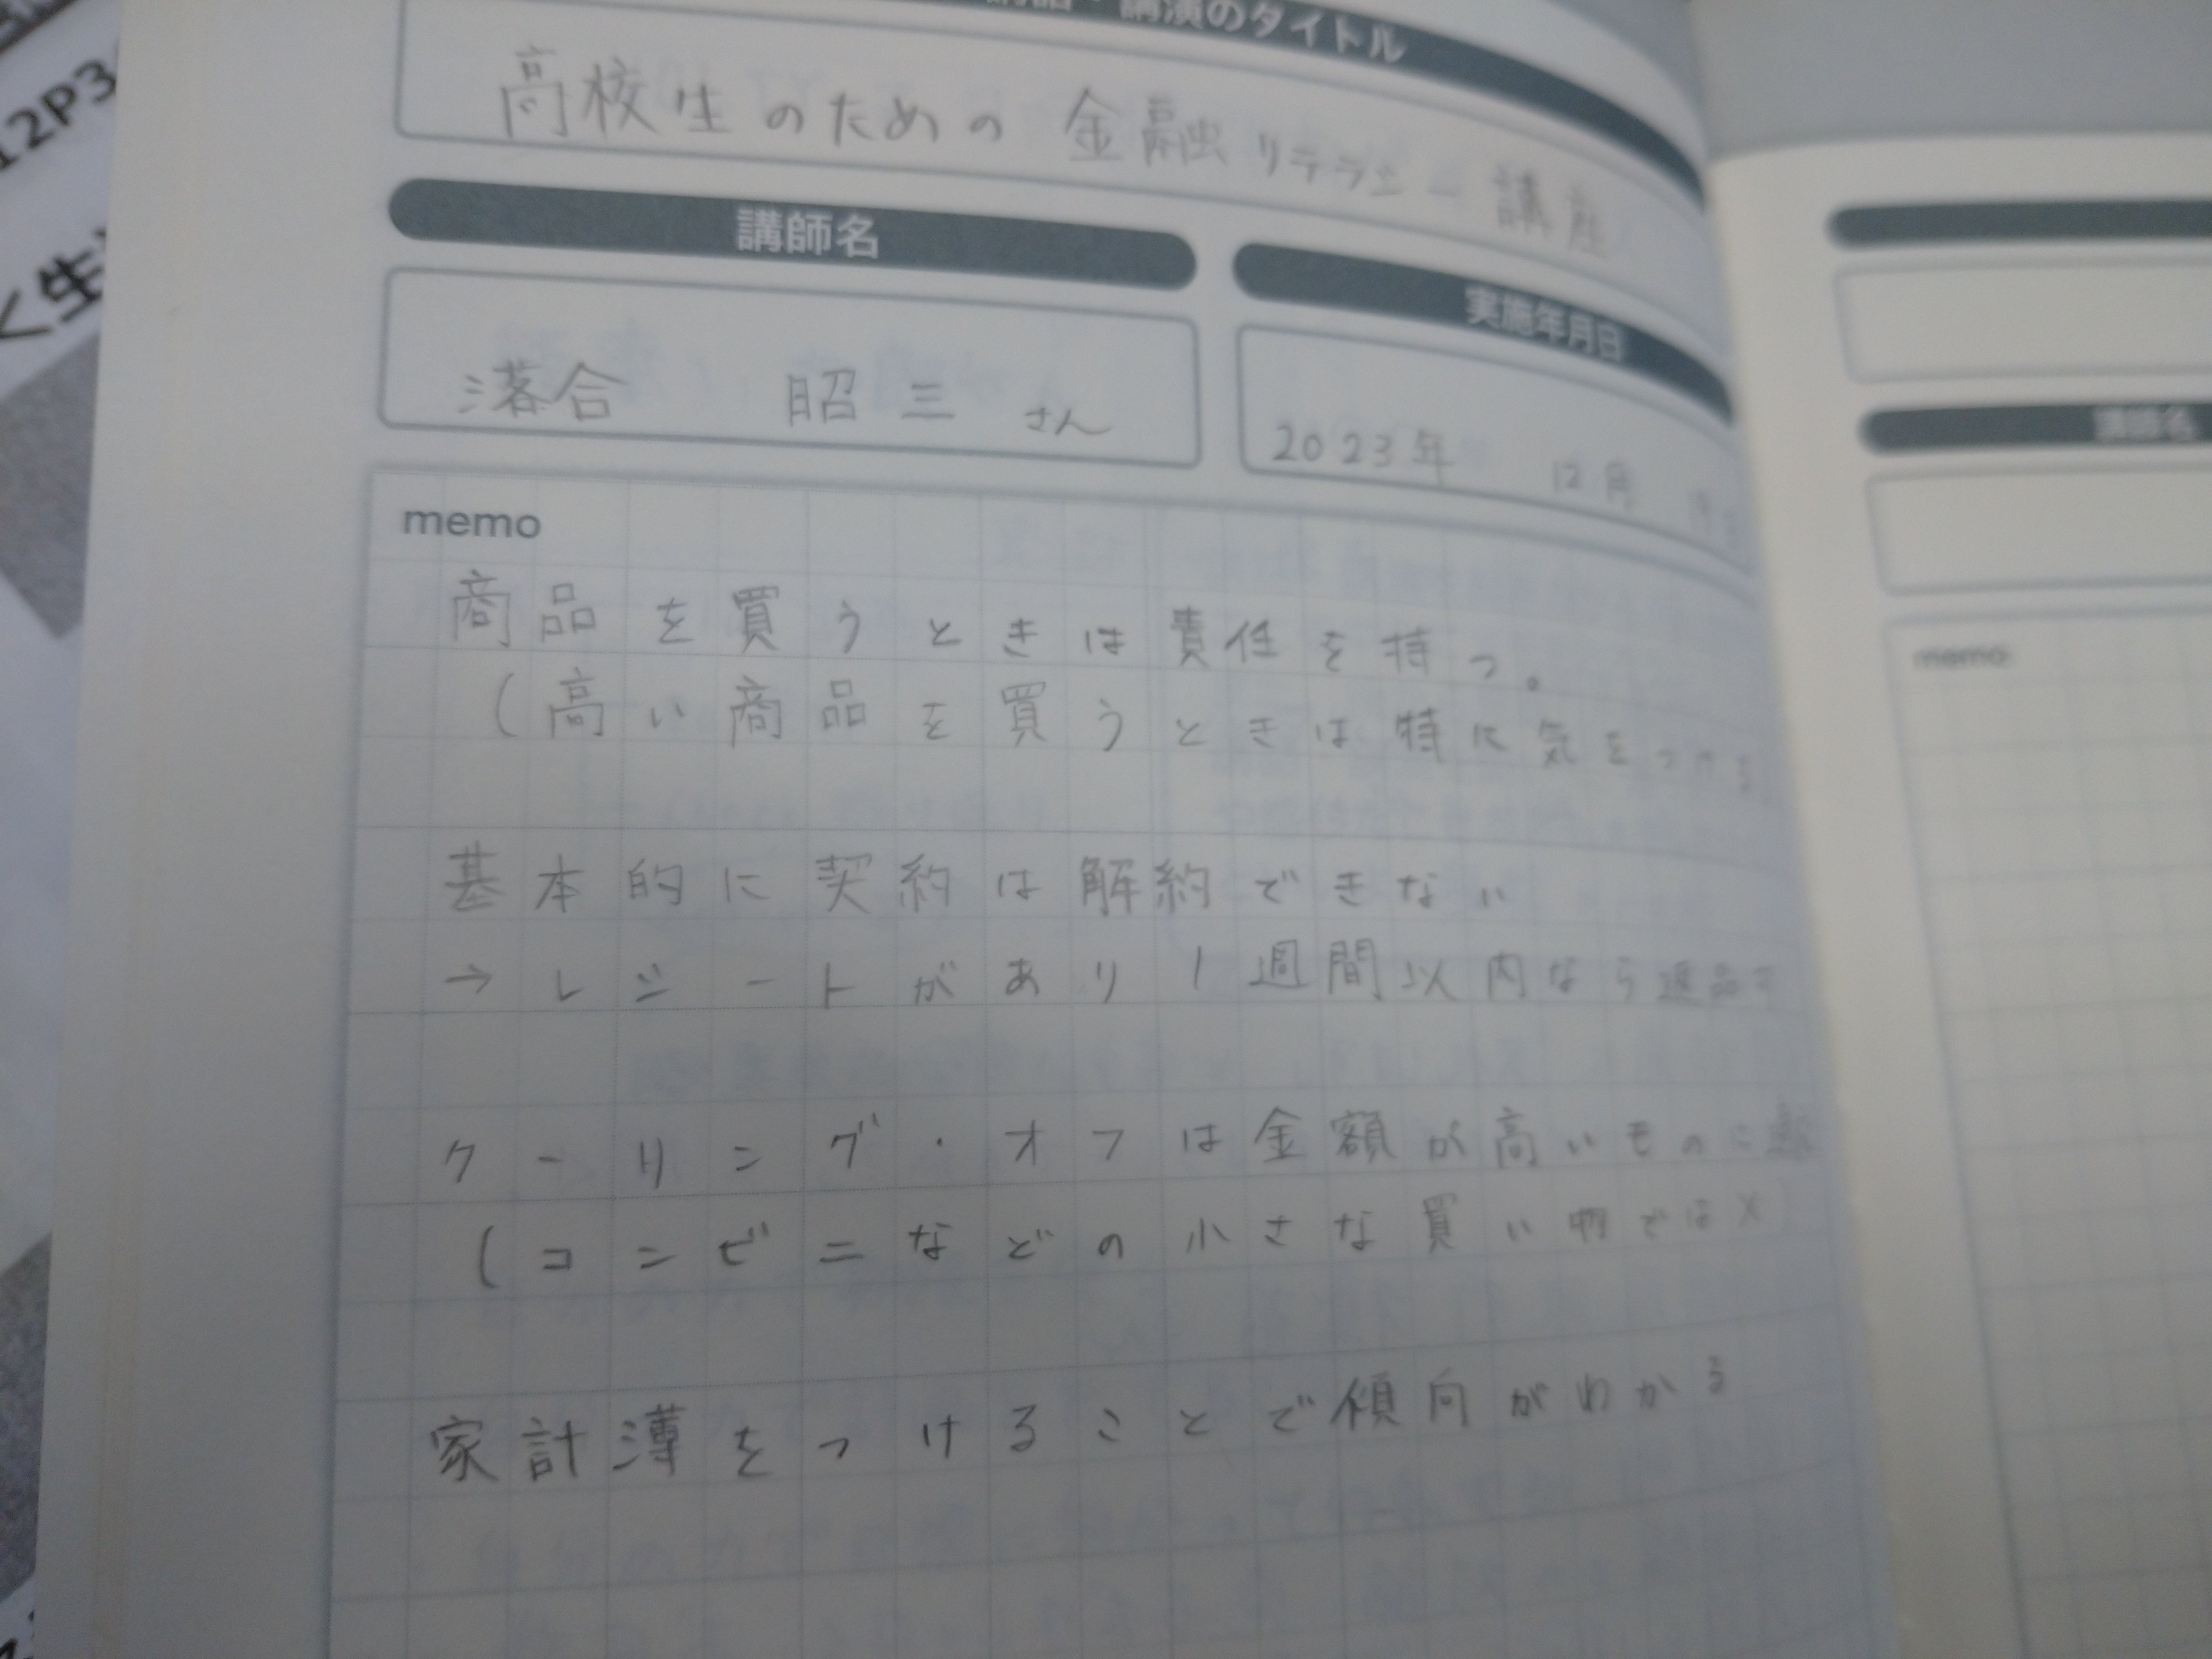 12P3
く生
講演のタイトル
高校生のための金融リテラシー講座
講師名
実施年月日
落合 昭三さん
2023年 12月
memo
商品を買うときは責任を持つ。
(高い商品を買うときは特に気をつける
基本的に契約は解約できない
→レシートがあり1週間以内なら返品
クーリング・オフは金額が高いものに
(コンビニなどの小さな買い物では×)
家計簿をつけることで傾向がわかる
講師名
memo